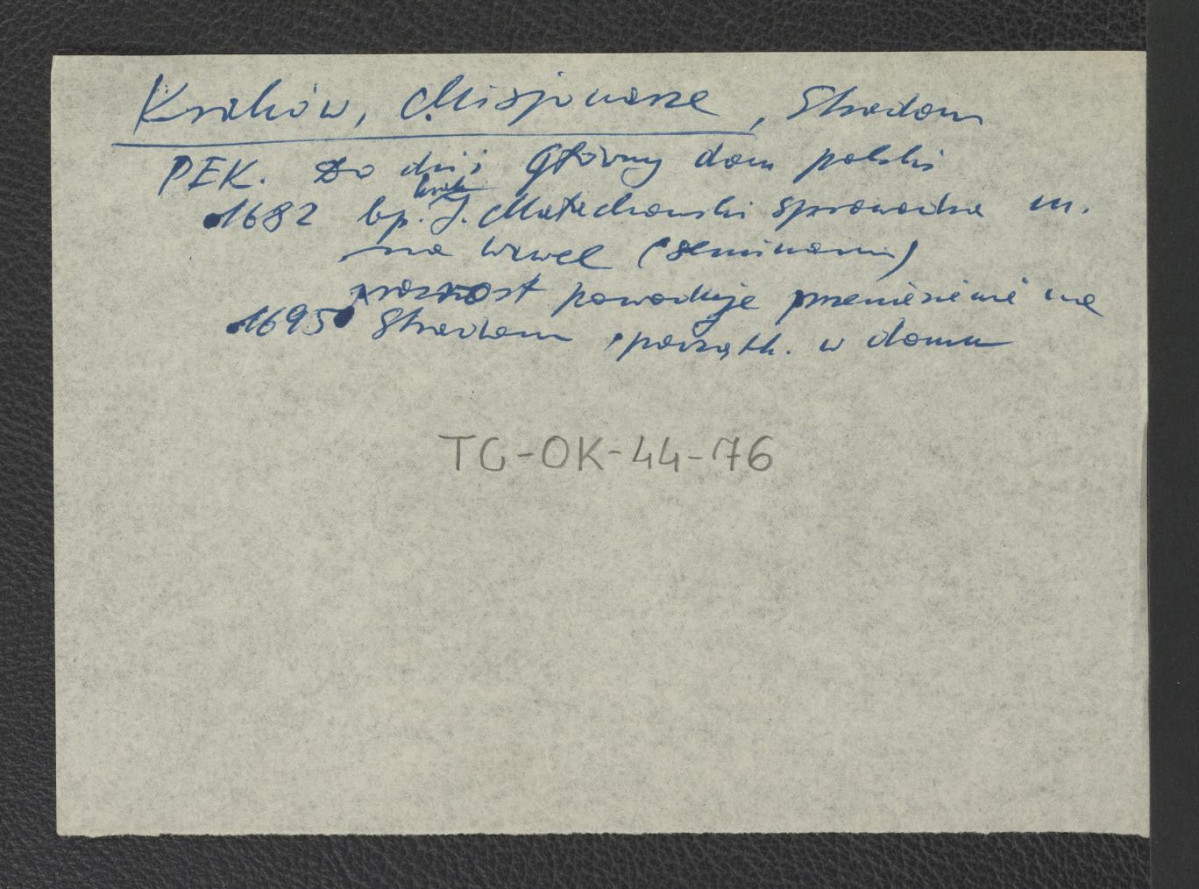 Kraków, Misjonarze, Stradom
PEK. Do dziś główny dom polski
1682 bp. krak. J. Małachowski sprowadza m.
na Wawel (seminarium)
rozrost powoduje przeniesienie na
1695 Stradom, początk. w domu
TG-OK-44-76